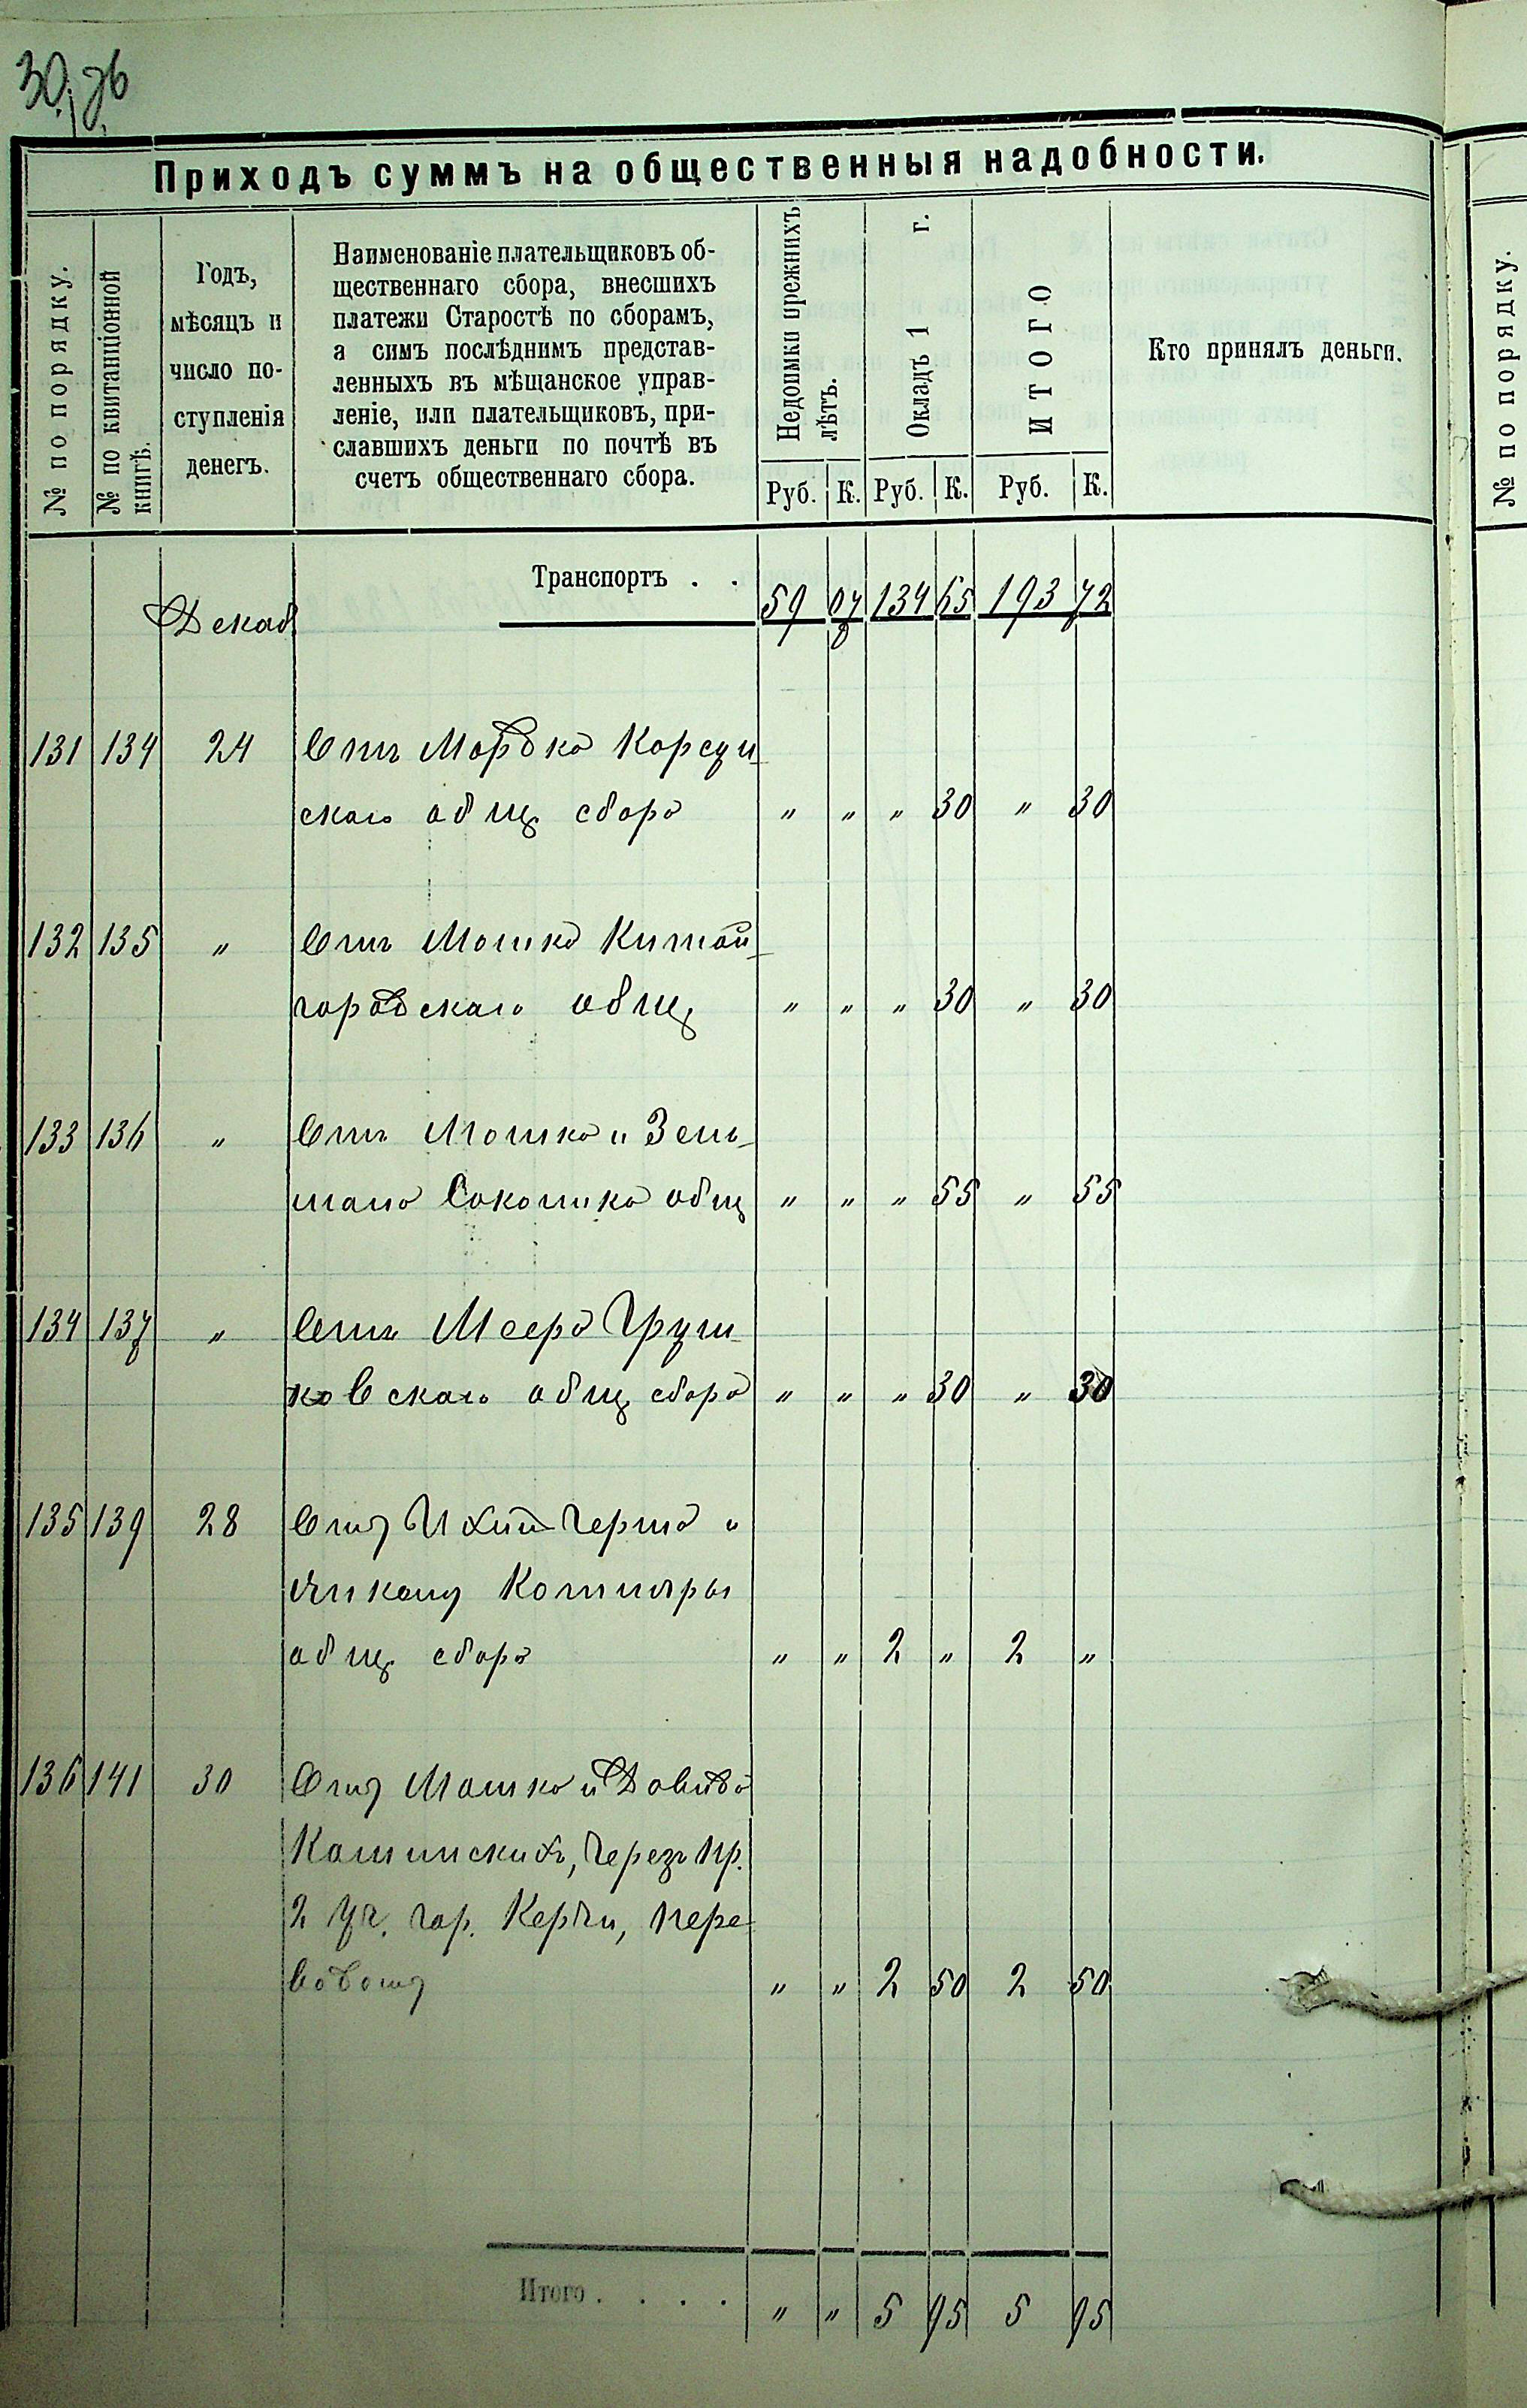 Приходъ суммъ на общественныя надобности.
№ по порядку.
№ по квитанціонной
книгѣ.
Годъ,
мѣсяцъ и
число по-
ступленія
денегъ.
Наименованіе плательщиковъ об-
щественнаго сбора, внесшихъ
платежи Старостѣ по сборамъ,
а симъ послѣднимъ представ-
ленныхъ въ мѣщанское управ-
леніе, или плательщиковъ, при-
славшихъ деньги по почтѣ въ
счетъ общественнаго сбора.
Недоимки прежнихъ
лѣтъ.
Окладъ 1 г.
ИТОГО
Кто принялъ деньги.
Руб. К. Руб. К. Руб. К.
№ по порядку.
Транспортъ . . 59 07 134 65 193 72
Декаб
131 134 24 Отъ Мордка Корсун-
скаго общ сбора " " " 30 " 30
132 135 " Отъ Мошка Китай-
городскаго общ " " " 30 " 30
133 136 " Отъ Мошка и Зель-
мана общ " " " 55 " 55
134 137 " Отъ Меера Груш-
ковскаго общ сбора " " " 30 " 30
135 139 28 Отъ Герша и
Котляры
общ сбора " " 2 " 2 "
136 141 30 Отъ Мошка и Давида
Каминскихъ, черезъ пр.
2 уч. гор. Керчи, пере-
водомъ " " 2 50 2 50
Итого . . . . " " 5 95 5 95